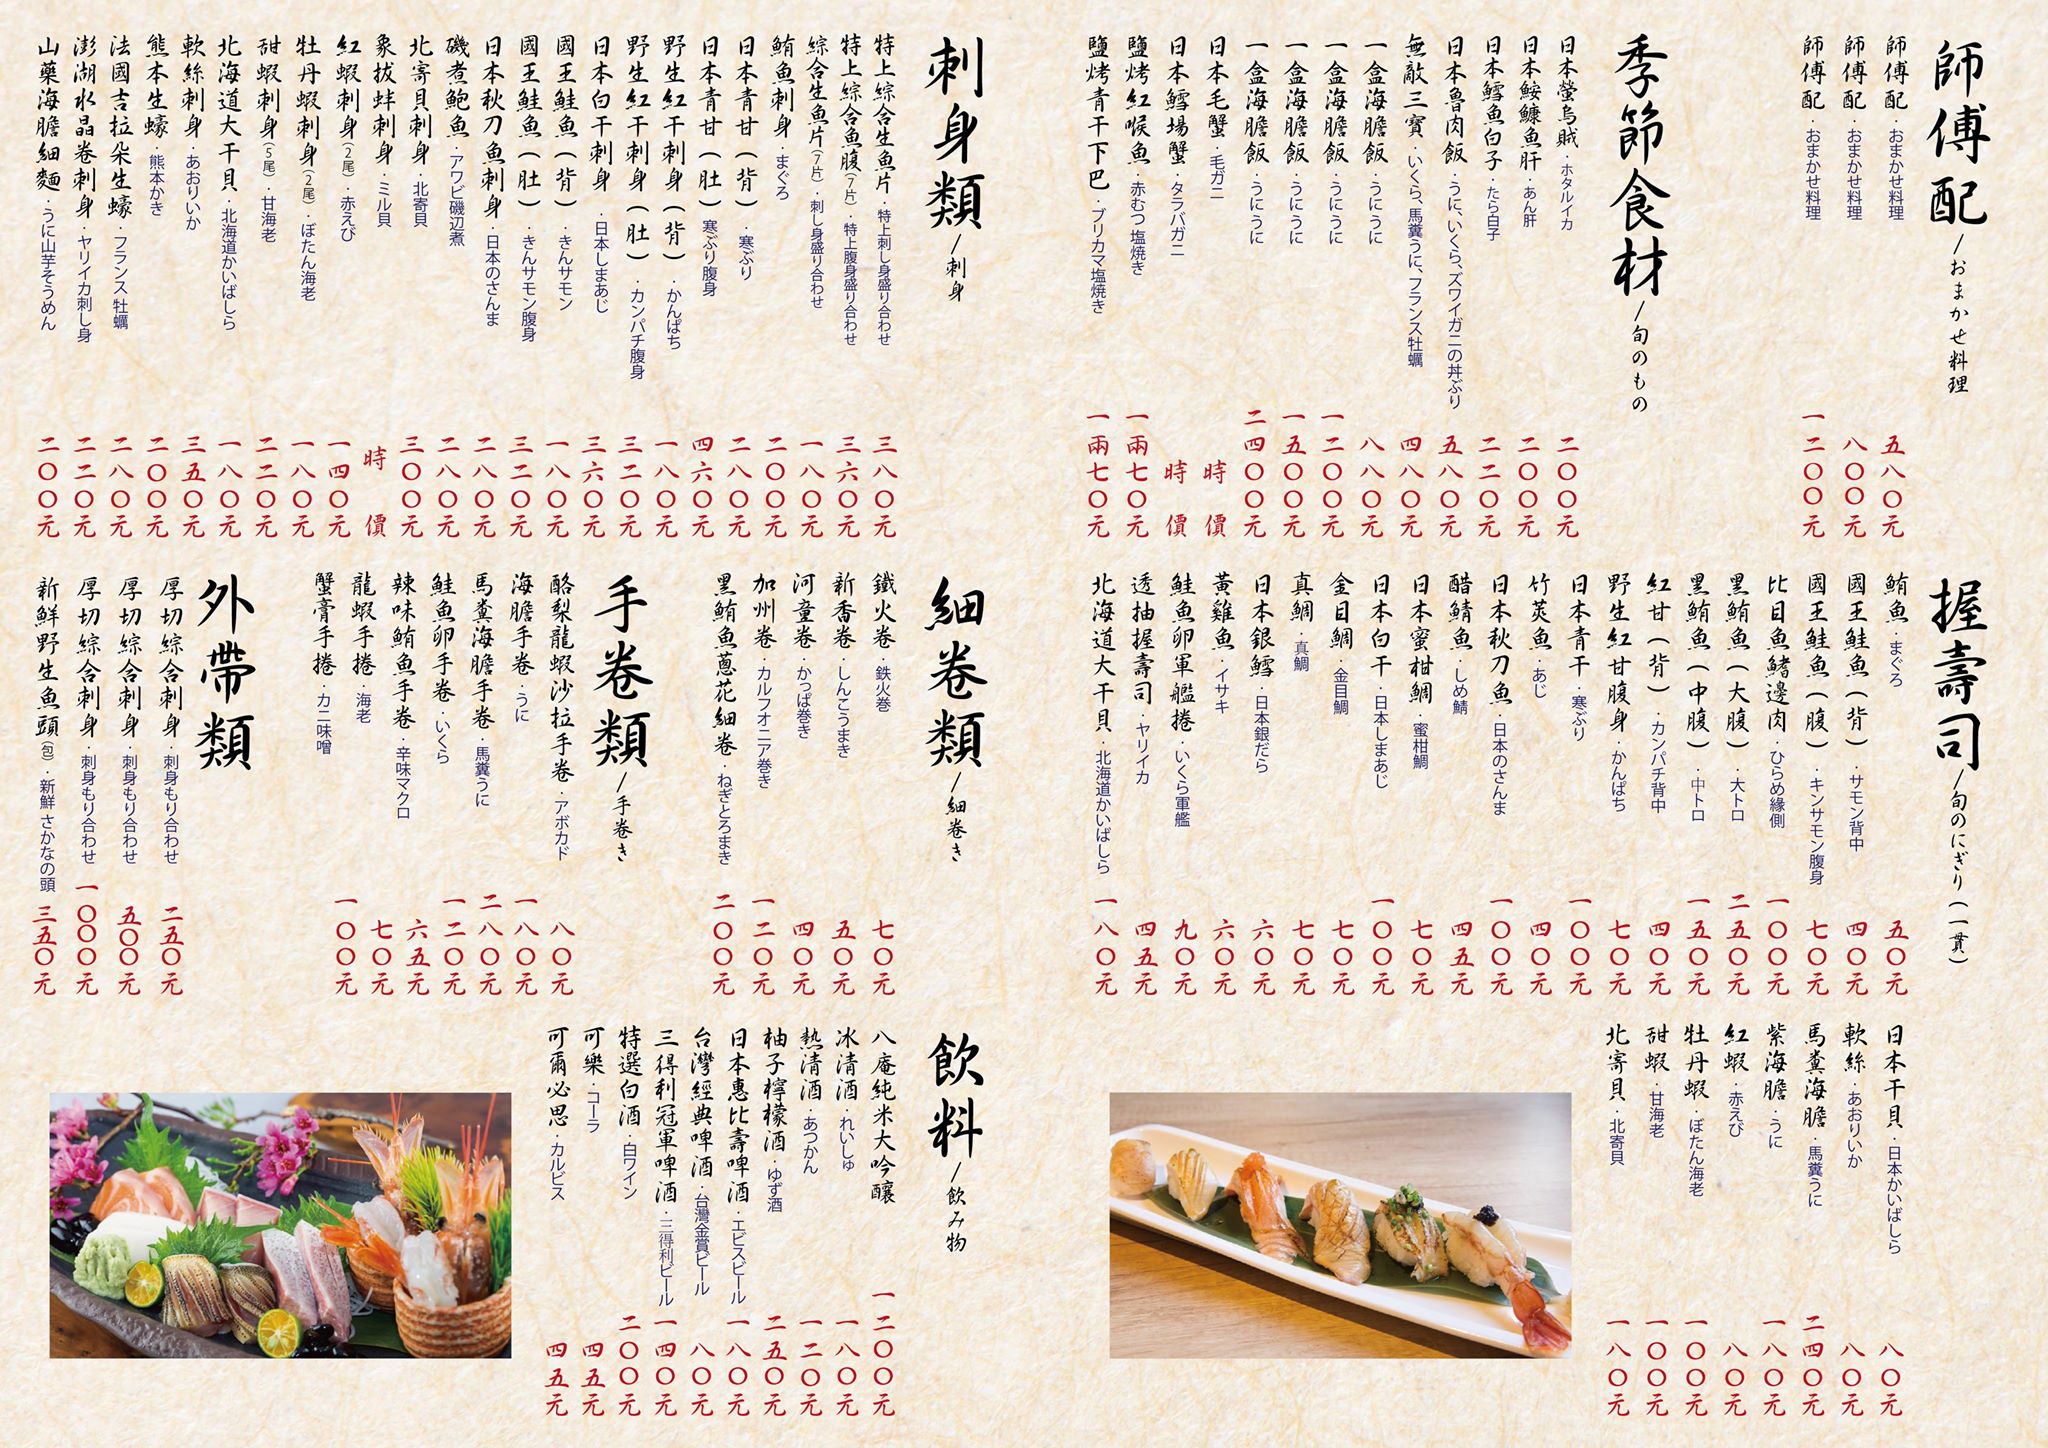 師傅配/おまかせ料理
師傅配・おまかせ料理 五八〇元
師傅配・おまかせ料理 八〇〇元
師傅配・おまかせ料理 一二〇〇元
季節食材/旬のもの
日本螢烏賊・ホタルイカ 二〇〇元
日本鮟鱇魚肝・あん肝 二〇〇元
日本鱈魚白子・たら白子 二二〇元
日本魯肉飯・うに、いくら、ズワイガニの丼ぶり 五八〇元
無敵三寶・いくら、馬糞うに、フランス牡蠣 四八〇元
一盒海膽飯・うにうに 八八〇元
一盒海膽飯・うにうに 一二〇〇元
一盒海膽飯・うにうに 一五〇〇元
一盒海膽飯・うにうに 二四〇〇元
日本毛蟹・毛ガニ 時價
日本鱈場蟹・タラバガニ 時價
鹽烤紅喉魚・赤むつ 塩焼き 一兩七〇元
鹽烤青干下巴・ブリカマ塩焼き 一兩七〇元
刺身類/刺身
特上綜合生魚片・特上刺し身盛り合わせ 三八〇元
特上綜合魚腹(7片)・特上腹身盛り合わせ 三六〇元
綜合生魚片(7片)・刺し身盛り合わせ 一八〇元
鮪魚刺身・まぐろ 二〇〇元
日本青甘(背)・寒ぶり 二八〇元
日本青甘(肚)寒ぶり腹身 四六〇元
野生紅干刺身(背)・かんぱち 一八〇元
野生紅干刺身(肚)・カンパチ腹身 三二〇元
日本白干刺身・日本しまあじ 三六〇元
國王鮭魚(背)・きんサモン 一八〇元
國王鮭魚(肚)・きんサモン腹身 三二〇元
日本秋刀魚刺身・日本のさんま 二八〇元
磯煮鮑魚・アワビ磯辺煮 二八〇元
北寄貝刺身・北寄貝 三〇〇元
象拔蚌刺身・ミル貝 時價
紅蝦刺身(2尾)・赤えび 一四〇元
牡丹蝦刺身(2尾)・ぼたん海老 一八〇元
甜蝦刺身(5尾)・甘海老 二二〇元
北海道大干貝・北海道かいばしら 一八〇元
軟絲刺身・あおりいか 三五〇元
熊本生蠔・熊本かき 二〇〇元
法國吉拉朵生蠔・フランス 牡蠣 二八〇元
澎湖水晶卷刺身・ヤリイカ刺し身 二二〇元
山藥海膽細麵・うに山芋そうめん 二〇〇元
握壽司/旬のにぎり(一貫)
鮪魚・まぐろ 五〇元
國王鮭魚(背)・サモン背中 四〇元
國王鮭魚(腹)・キンサモン腹身 七〇元
比目魚鰭邊肉・ひらめ縁側 一〇〇元
黑鮪魚(大腹)・大トロ 二五〇元
黑鮪魚(中腹)・中トロ 一五〇元
紅甘(背)・カンパチ背中 四〇元
野生紅甘腹身・かんぱち 七〇元
日本青干・寒ぶり 一〇〇元
竹莢魚・あじ 四〇元
日本秋刀魚・日本のさんま 一〇〇元
醋鯖魚・しめ鯖 四五元
日本蜜柑鯛・蜜柑鯛 七〇元
日本白干・日本しまあじ 一〇〇元
金目鯛・金目鯛 七〇元
真鯛・真鯛 七〇元
日本銀鱈・日本銀だら 六〇元
黃雞魚・イサキ 六〇元
鮭魚卵軍艦捲・いくら軍艦 九〇元
透抽握壽司・ヤリイカ 四五元
北海道大干貝・北海道かいばしら 一八〇元
日本干貝・日本かいばしら 八〇元
軟絲・あおりいか 八〇元
馬糞海膽・馬糞うに 二四〇元
紫海膽・うに 一八〇元
紅蝦・赤えび 八〇元
牡丹蝦・ぼたん海老 一〇〇元
甜蝦・甘海老 一〇〇元
北寄貝・北寄貝 一八〇元
細卷類/細巻き
鐵火卷・鉄火巻 七〇元
新香卷・しんこうまき 五〇元
河童卷・かっぱ巻き 四〇元
加州卷・カルフォニア巻き 一二〇元
黑鮪魚蔥花細卷・ねぎとろまき 二〇〇元
手卷類/手巻き
酪梨龍蝦沙拉手卷・アボカド 八〇元
海膽手卷・うに 一八〇元
馬糞海膽手卷・馬糞うに 二八〇元
鮭魚卵手卷・いくら 一二〇元
辣味鮪魚手卷・辛味マクロ 六五元
龍蝦手捲・海老 七〇元
蟹膏手捲・カニ味噌 一〇〇元
外帶類
厚切綜合刺身・刺身もり合わせ 二五〇元
厚切綜合刺身・刺身もり合わせ 五〇〇元
厚切綜合刺身・刺身もり合わせ 一〇〇〇元
新鮮野生魚頭(包)・新鮮 さかなの頭 三五〇元
飲料/飲み物
八庵純米大吟釀 一二〇〇元
冰清酒・れいしゅ 一八〇元
熱清酒・あつかん 一二〇元
柚子檸檬酒・ゆず酒 二五〇元
日本惠比壽啤酒・エビスビール 一八〇元
台灣經典啤酒・台灣金賞ビール 八〇元
三得利冠軍啤酒・三得利ビール 一四〇元
特選白酒・白ワイン 二〇〇元
可樂・コーラ 四五元
可爾必思・カルピス 四五元